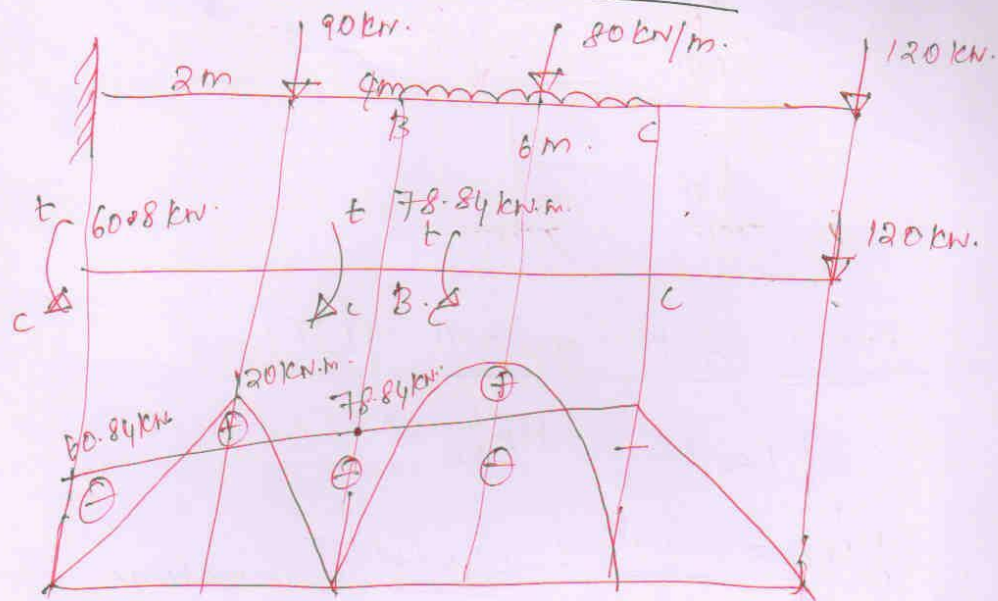 90KN. 80KN/m. 120KN.
2m 4m
B 6m. C
t 60.8KN. t 78.84KN.m. t 120KN.
C c B. C C
120KN.m.
60.84KN 78.84KN. + + -
- + -